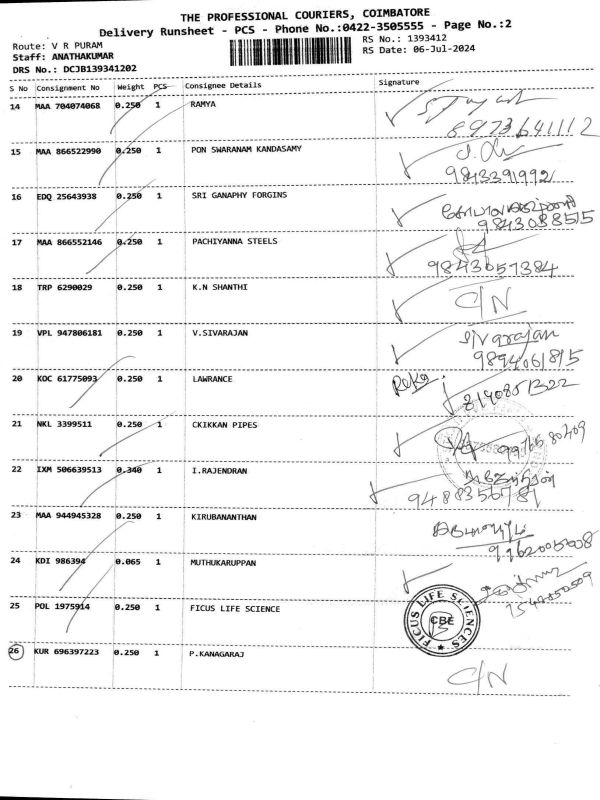 THE PROFESSIONAL COURIERS, COIMBATORE
Delivery Runsheet - PCS - Phone No.:0422-3505555 - Page No.:2
Route: V R PURAM
RS No.: 1393412
Staff: ANATHAKUMAR
RS Date: 06-Jul-2024
DRS No.: DCJB139341202
S No Consignment No Weight PCS Consignee Details Signature
14 MAA 704074068 0.250 1 RAMYA
8973641112
15 MAA 866522990 0.250 1 PON SWARANAM KANDASAMY
9843391992
16 EDQ 25643938 0.250 1 SRI GANAPHY FORGINS
9843038515
17 MAA 866552146 0.250 1 PACHIYANNA STEELS
9843057384
18 TRP 6290029 0.250 1 K.N SHANTHI C/N
19 VPL 947806181 0.250 1 V.SIVARAJAN Sivarajan
9894061815
20 KOC 61775093 0.250 1 LAWRANCE Reka
8190851322
21 NKL 3399511 0.250 1 CKIKKAN PIPES
22 IXM 506639513 0.340 1 I.RAJENDRAN
9488356781
23 MAA 944945328 0.250 1 KIRUBANANTHAN
24 KDI 986394 0.065 1 MUTHUKARUPPAN
25 POL 1975914 0.250 1 FICUS LIFE SCIENCE
FICUS LIFE SCIENCES
CBE
26 KUR 696397223 0.250 1 P.KANAGARAJ C/N